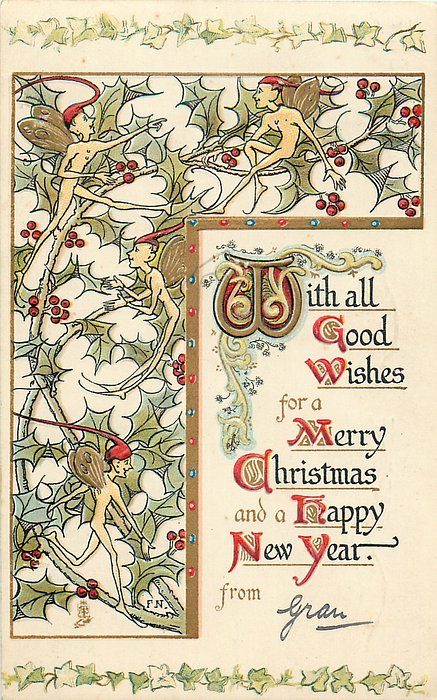 With all
Good
Wishes
for a
Merry
Christmas
and a Happy
New Year.
from Gran
F.N.